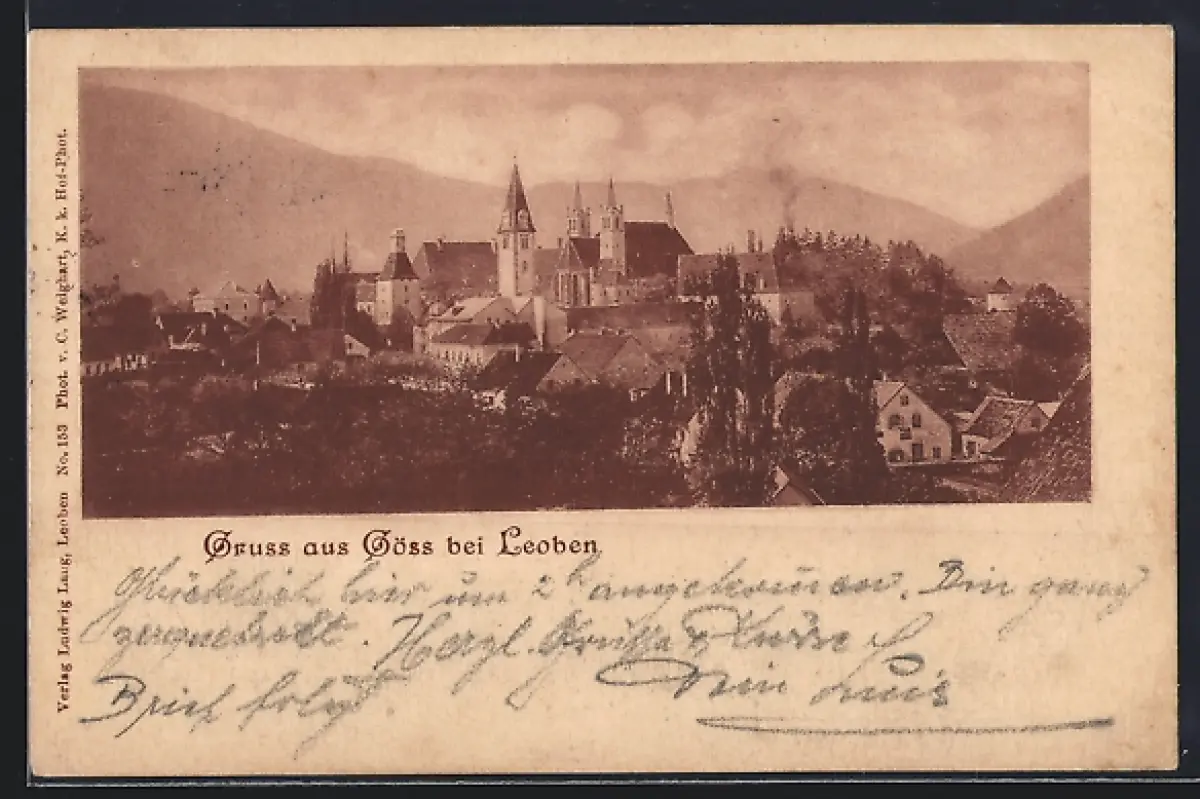 Verlag Ludwig Lang, Leoben No. 153 Phot. v. C. Weighart, K. k. Hof-Phot.
Gruss aus Göss bei Leoben
Glücklich hier um 2h angekommen. Bin ganz
zerquetscht. Herzl. Grüsse & Küsse
Brief folgt. Luis